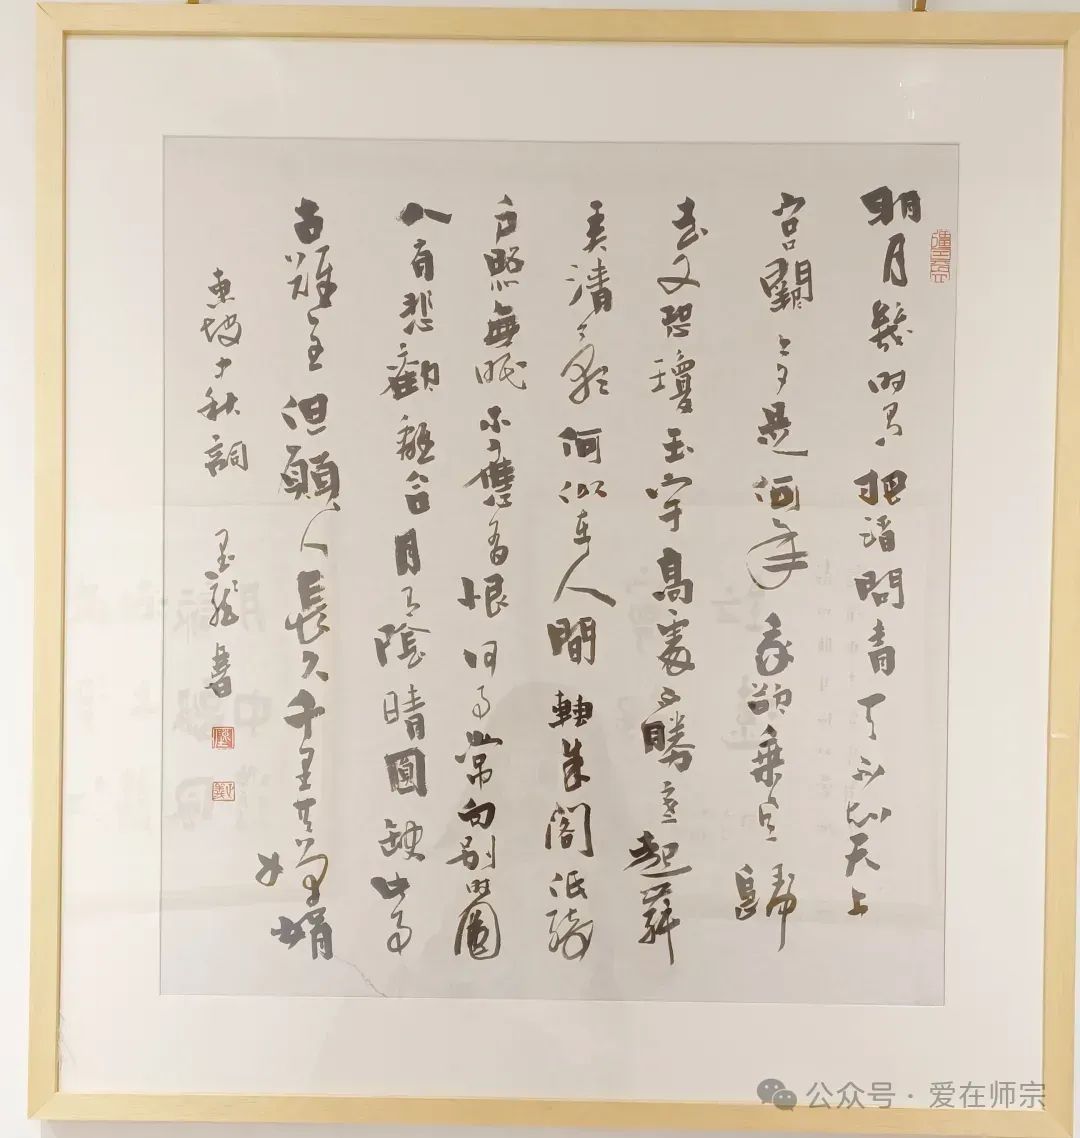 明月幾时有把酒問青天不知天上
宮闕今夕是何年我欲乘風歸
去又恐瓊玉宇高處不勝寒起舞
弄清影何似在人間轉朱閣低綺
户照無眠不應有恨何事常向别时圓
人有悲歡離合月有陰晴圓缺此事
古難全但願人長久千里共嬋娟
東坡中秋詞 龍書
公众号 · 爱在师宗